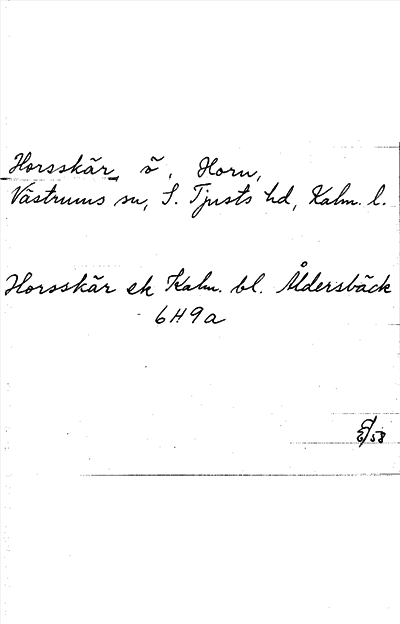 Horsskär, ö, Horn,
Västrums sn, S. Tjusts hd, Kalm. l.
Horsskär ek Kalm. bl. Åldersbäck
6H9a
58